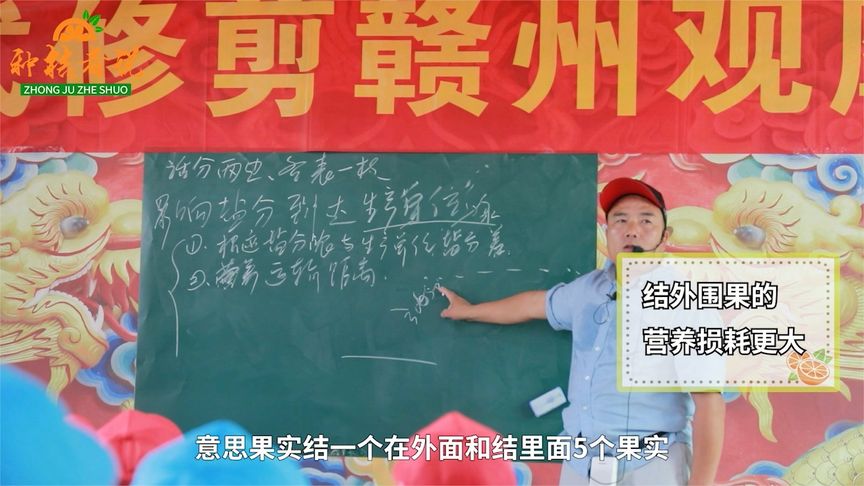 种桔者说
ZHONG JU ZHE SHUO
修剪赣州观
话分两边、各表一枝
影响盐分到达生产单位
①.根迹盐分浓与生产单位盐分差.
②.营养运输距离.
结外围果的
营养损耗更大
意思果实结一个在外面和结里面5个果实